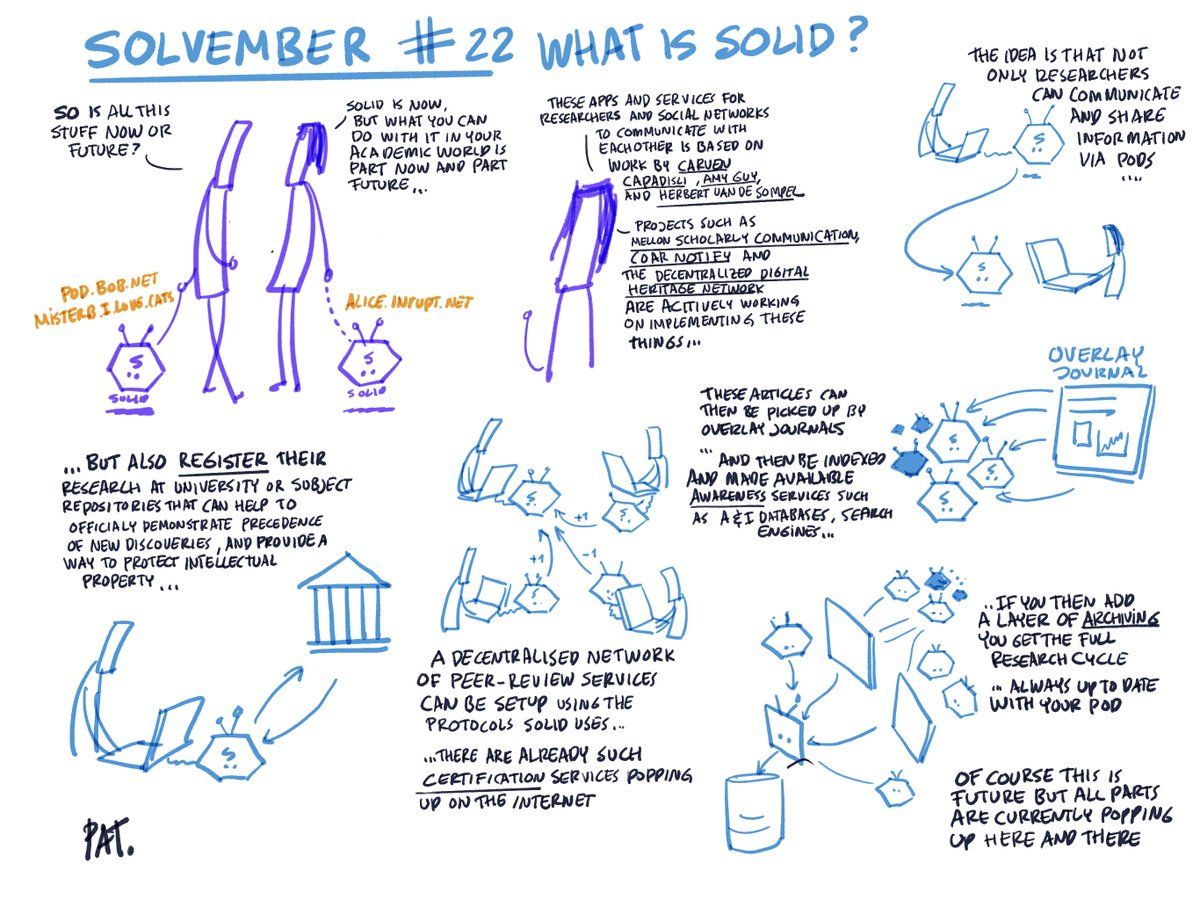 SOLVEMBER #22 WHAT IS SOLID?
SO IS ALL THIS
STUFF NOW OR
FUTURE?
SOLID IS NOW,
BUT WHAT YOU CAN
DO WITH IT IN YOUR
ACADEMIC WORLD IS
PART NOW AND PART
FUTURE...
POD.BOB.NET
MISTERB.I.LOVE.CATS
S
SOLID
ALICE.INRUPT.NET
S
SOLID
THESE APPS AND SERVICES FOR
RESEARCHERS AND SOCIAL NETWORKS
TO COMMUNICATE WITH
EACHOTHER IS BASED ON
WORK BY SARVEN
CAPADISLI, AMY GUY,
AND HERBERT VAN DE SOMPEL
PROJECTS SUCH AS
MELLON SCHOLARLY COMMUNICATION,
COAR NOTIFY AND
THE DECENTRALIZED DIGITAL
HERITAGE NETWORK
ARE ACTIVELY WORKING
ON IMPLEMENTING THESE
THINGS...
THE IDEA IS THAT NOT
ONLY RESEARCHERS
CAN COMMUNICATE
AND SHARE
INFORMATION
VIA PODS
....
S
S
... BUT ALSO REGISTER THEIR
RESEARCH AT UNIVERSITY OR SUBJECT
REPOSITORIES THAT CAN HELP TO
OFFICIALY DEMONSTRATE PRECEDENCE
OF NEW DISCOVERIES, AND PROVIDE A
WAY TO PROTECT INTELLECTUAL
PROPERTY...
S
S
+1
S
+1
-1
A DECENTRALISED NETWORK
OF PEER-REVIEW SERVICES
CAN BE SETUP USING THE
PROTOCOLS SOLID USES...
...THERE ARE ALREADY SUCH
CERTIFICATION SERVICES POPPING
UP ON THE INTERNET
THESE ARTICLES CAN
THEN BE PICKED UP BY
OVERLAY JOURNALS
...
AND THEN BE INDEXED
AND MADE AVAILABLE
AWARENESS SERVICES SUCH
AS A&I DATABASES, SEARCH
ENGINES...
OVERLAY
JOURNAL
S
S
S
...IF YOU THEN ADD
A LAYER OF ARCHIVING
YOU GET THE FULL
RESEARCH CYCLE
... ALWAYS UP TO DATE
WITH YOUR POD
OF COURSE THIS IS
FUTURE BUT ALL PARTS
ARE CURRENTLY POPPING
UP HERE AND THERE
PAT.